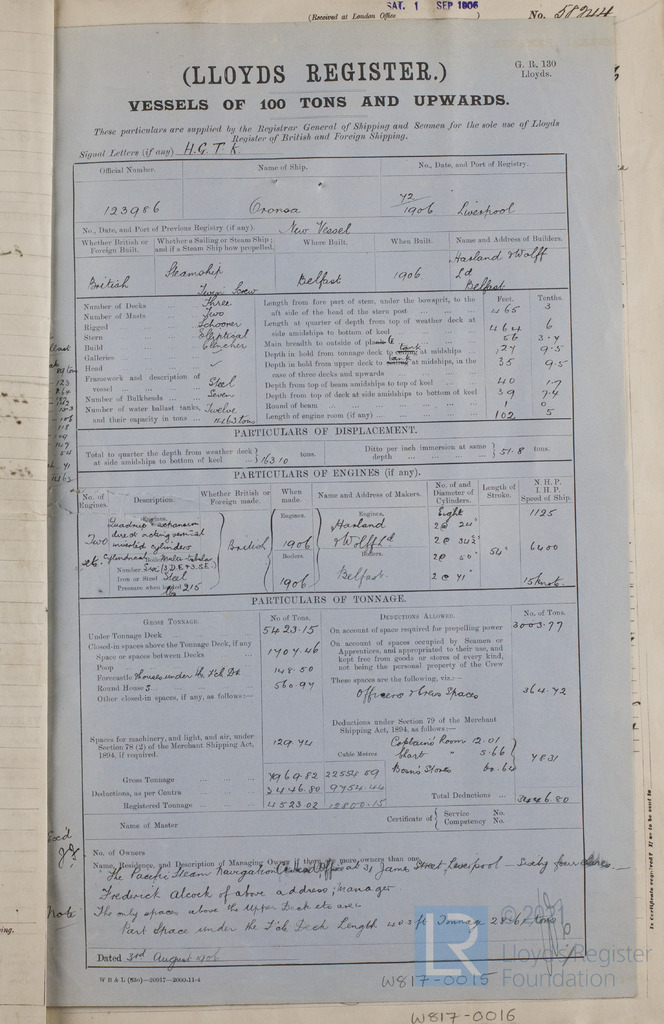 SAT. 1 SEP 1906
(Received at London Office ) No. 58244
G. R. 130
Lloyds.
(LLOYDS REGISTER.)
VESSELS OF 100 TONS AND UPWARDS.
These particulars are supplied by the Registrar General of Shipping and Seamen for the sole use of Lloyds
Register of British and Foreign Shipping.
Signal Letters (if any) H.G.T.K.
Official Number. Name of Ship. No., Date, and Port of Registry.
123986 Oronsa 72/1906 Liverpool
No., Date, and Port of Previous Registry (if any). New Vessel
Whether British or Foreign Built. Whether a Sailing or Steam Ship; and if a Steam Ship how propelled. Where Built. When Built. Name and Address of Builders.
British Steamship Twin Screw Belfast 1906 Harland & Wolff Ld Belfast
Number of Decks Three
Number of Masts Two
Rigged Schooner
Stern Elliptical
Build Clencher
Galleries
Head
Framework and description of vessel Steel
Number of Bulkheads Seven
Number of water ballast tanks, and their capacity in tons Twelve 1263 tons
Feet. Tenths.
Length from fore part of stem, under the bowsprit, to the aft side of the head of the stern post 465 3
Length at quarter of depth from top of weather deck at side amidships to bottom of keel 464 6
Main breadth to outside of plate 56 3.4
Depth in hold from tonnage deck to tank at midships 27 9.5
Depth in hold from upper deck to tank at midships, in the case of three decks and upwards 35 9.5
Depth from top of beam amidships to top of keel 40 1.7
Depth from top of deck at side amidships to bottom of keel 39 7.4
Round of beam 1 0
Length of engine room (if any) 102 5
PARTICULARS OF DISPLACEMENT.
Total to quarter the depth from weather deck at side amidships to bottom of keel 16310 tons. Ditto per inch immersion at same depth 51.8 tons.
PARTICULARS OF ENGINES (if any).
No. of Engines. Description. Whether British or Foreign made. When made. Name and Address of Makers. No. of and Diameter of Cylinders. Length of Stroke. N.H.P. I.H.P. Speed of Ship.
Two Engines. Quadruple expansion direct acting vertical inverted cylinders British Engines. 1906 Engines. Harland & Wolff Ld Eight 2 @ 24" 2 @ 34½" 2 @ 50" 2 @ 71" 54" 1125 6400 15 knots.
Cylindrical Multi-tubular
Number Six (3 D.E & 3 S.E.)
Iron or Steel Steel
Pressure when loaded 215 lb
Boilers. 1906 Boilers. Belfast
PARTICULARS OF TONNAGE.
GROSS TONNAGE. No. of Tons. DEDUCTIONS ALLOWED. No. of Tons.
Under Tonnage Deck 5423.15
Closed-in spaces above the Tonnage Deck, if any
Space or spaces between Decks 1707.46
Poop
Forecastle Houses under the F'cle Dk 148.50
Round House s 560.97
Other closed-in spaces, if any, as follows:—
Spaces for machinery, and light, and air, under Section 78 (2) of the Merchant Shipping Act, 1894, if required. 129.74
On account of space required for propelling power 3003.77
On account of spaces occupied by Seamen or Apprentices, and appropriated to their use, and kept free from goods or stores of every kind, not being the personal property of the Crew
These spaces are the following, viz.:—
Officers & Crews Spaces 364.72
Deductions under Section 79 of the Merchant Shipping Act, 1894, as follows:—
Captain's Room 12.01
Chart " 5.66
Bosn's Stores 60.64
78.31
Cubic Metres
Gross Tonnage 7969.82 22554.59
Deductions, as per Contra 3446.80 9754.44
Registered Tonnage 4523.02 12800.15
Total Deductions 3446.80
Name of Master Certificate of Service No. Competency No.
No. of Owners
Name, Residence, and Description of Managing Owner if there are more owners than one
The Pacific Steam Navigation Co Head Office at 31 James Street Liverpool — Sixty four shares —
Frederick Alcock of above address, Manager
Note The only spaces above the Upper Deck etc are:
Part Space under the F'cle Deck Length 40.3 ft Tonnage tons
Dated 3rd August 1906
W B & L (836)—20917—2000-11-4
W817-0015
W817-0016
LR
© 2021
Lloyd's Register
Foundation